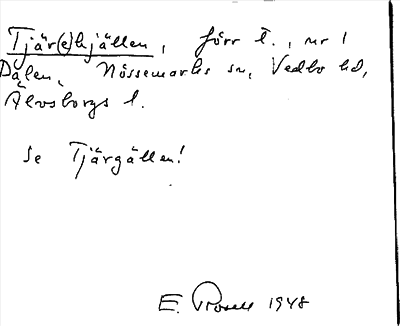 Tjär(e)kjällen, förr t., nr 1
Dalen, Nössemarks sn, Vedbo hd,
Älvsborgs l.
Se Tjärgällen!
E. Rosell 1948